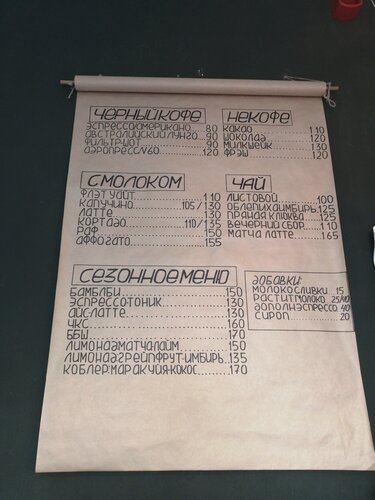 ЧЕРНЫЙ КОФЕ
ЭСПРЕССО/АМЕРИКАНО....80
АВСТРАЛИЙСКИЙ ЛУНГО...90
ФИЛЬТР ИОТ............90
АЭРОПРЕСС/V60.........120
НЕ КОФЕ
КАКАО.................110
ШОКОЛАД...............120
МИЛКШЕЙК..............130
ФРЭШ..................120
С МОЛОКОМ
ФЛЭТ УАЙТ.............110
КАПУЧИНО..............105/130
ЛАТТЕ.................130
КОРТАДО...............110/135
РАФ...................150
АФФОГАТО..............155
ЧАЙ
ЛИСТОВОЙ..............100
ОБЛЕПИХА ИМБИРЬ.......125
ПРЯНАЯ КЛЮКВА.........125
ВЕЧЕРНИЙ СБОР.........110
МАТЧА ЛАТТЕ...........165
СЕЗОННОЕ МЕНЮ
БАМБЛБИ...............150
ЭСПРЕССО ТОНИК........130
АЙС-ЛАТТЕ.............130
ЧКС...................160
ББШ...................170
ЛИМОНАД МАТЧА ЛАЙМ....150
ЛИМОНАД ГРЕЙПФРУТ-ИМБИРЬ..135
КОБЛЕР: МАРАКУЙЯ-КОКОС....170
ДОБАВКИ:
МОЛОКО СЛИВКИ 15
РАСТИТ МОЛОКО 25/40
ДОПОЛН ЭСПРЕССО 40
СИРОП.........20